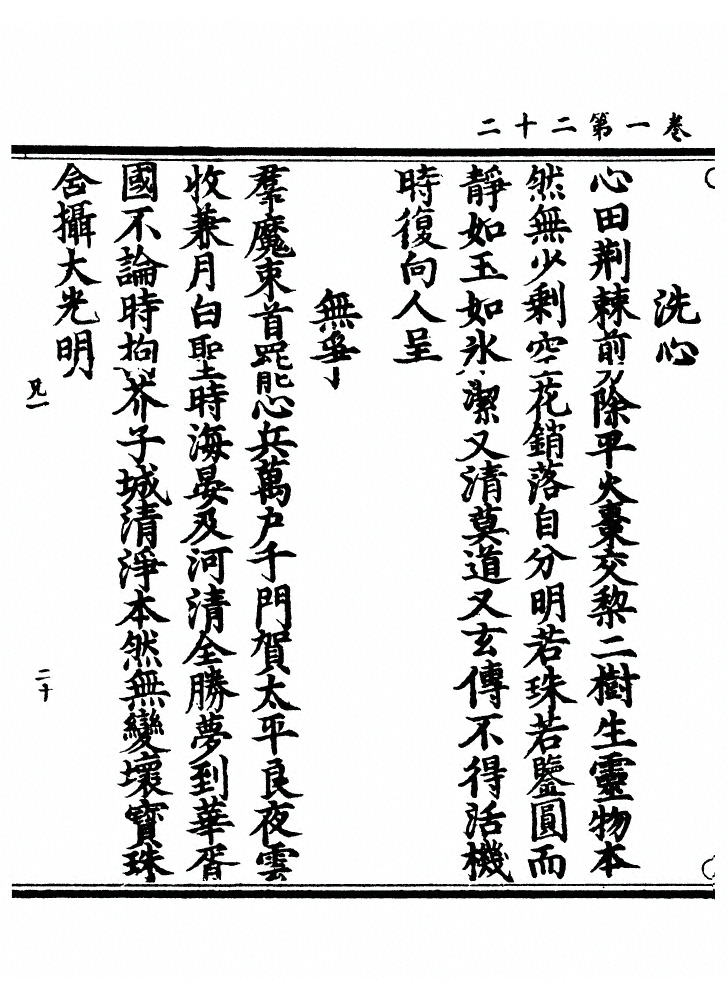 卷一第二十二
洗心
心田荆棘前刃除平火棗交黎二樹生靈物本
然無少剩空花銷落自分明若珠若鑒圓而
靜如玉如氷潔又清莫道又玄傳不得活機
時復向人呈
無爭
羣魔束首罷心兵萬户千門賀太平良夜雲
收兼月白聖時海晏及河清全勝夢到華胥
國不論時拘芥子城清淨本然無變壞寶珠
含攝大光明
二十